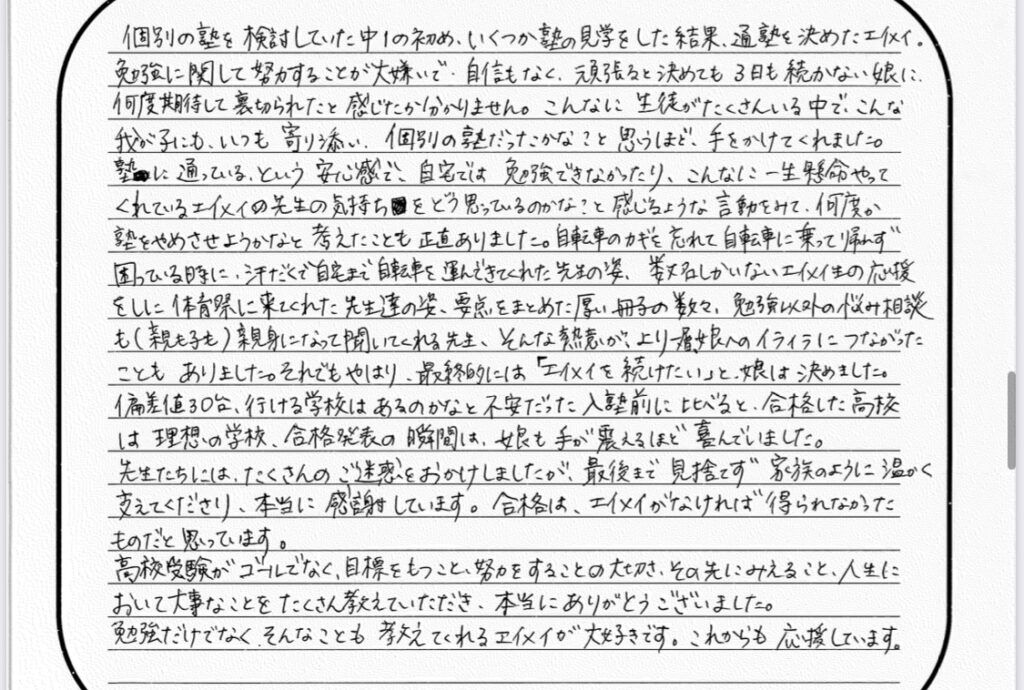 個別の塾を検討していた中1の初め、いくつか塾の見学をした結果、通塾を決めたエイメイ。
勉強に関して努力することが大嫌いで、自信もなく、頑張ると決めても3日も続かない娘に、
何度期待して裏切られたと感じたか分かりません。こんなに生徒がたくさんいる中で、こんな
我が子にも、いつも寄り添い、個別の塾だったかなこと思うほど、手をかけてくれました。
塾に通っている、という安心感で、自宅では勉強できなかったり、こんなに一生懸命やって
くれているエイメイの先生の気持ちをどう思っているのかなこと感じるような言動をみて、何度か
塾をやめさせようかなと考えたことも正直ありました。自転車のカギを忘れて自転車に乗って帰れず
困っている時に、汗だくで自宅まで自転車を運んできてくれた先生の姿、数名しかいないエイメイ生の応援
をしに体育祭に来てくれた先生達の姿、要点をまとめた厚い冊子の数々、勉強以外の悩み相談
も(親も子も)親身になって聞いてくれる先生、そんな熱意が、より一層娘へのイライラにつながった
こともありました。それでもやはり、最終的には「エイメイを続けたい」と、娘は決めました。
偏差値30台、行ける学校はあるのかなと不安だった入塾前に比べると、合格した高校
は理想の学校、合格発表の瞬間は、娘も手が震えるほど喜んでいました。
先生たちには、たくさんのご迷惑をおかけしましたが、最後まで見捨てず家族のように温かく
支えてくださり、本当に感謝しています。合格は、エイメイがなければ得られなかった
ものだと思っています。
高校受験がゴールでなく、目標をもつこと、努力をすることの大切さ、その先にみえること、人生に
おいて大事なことをたくさん教えていただき、本当にありがとうございました。
勉強だけでなく、そんなことも教えてくれるエイメイが大好きです。これからも応援しています。